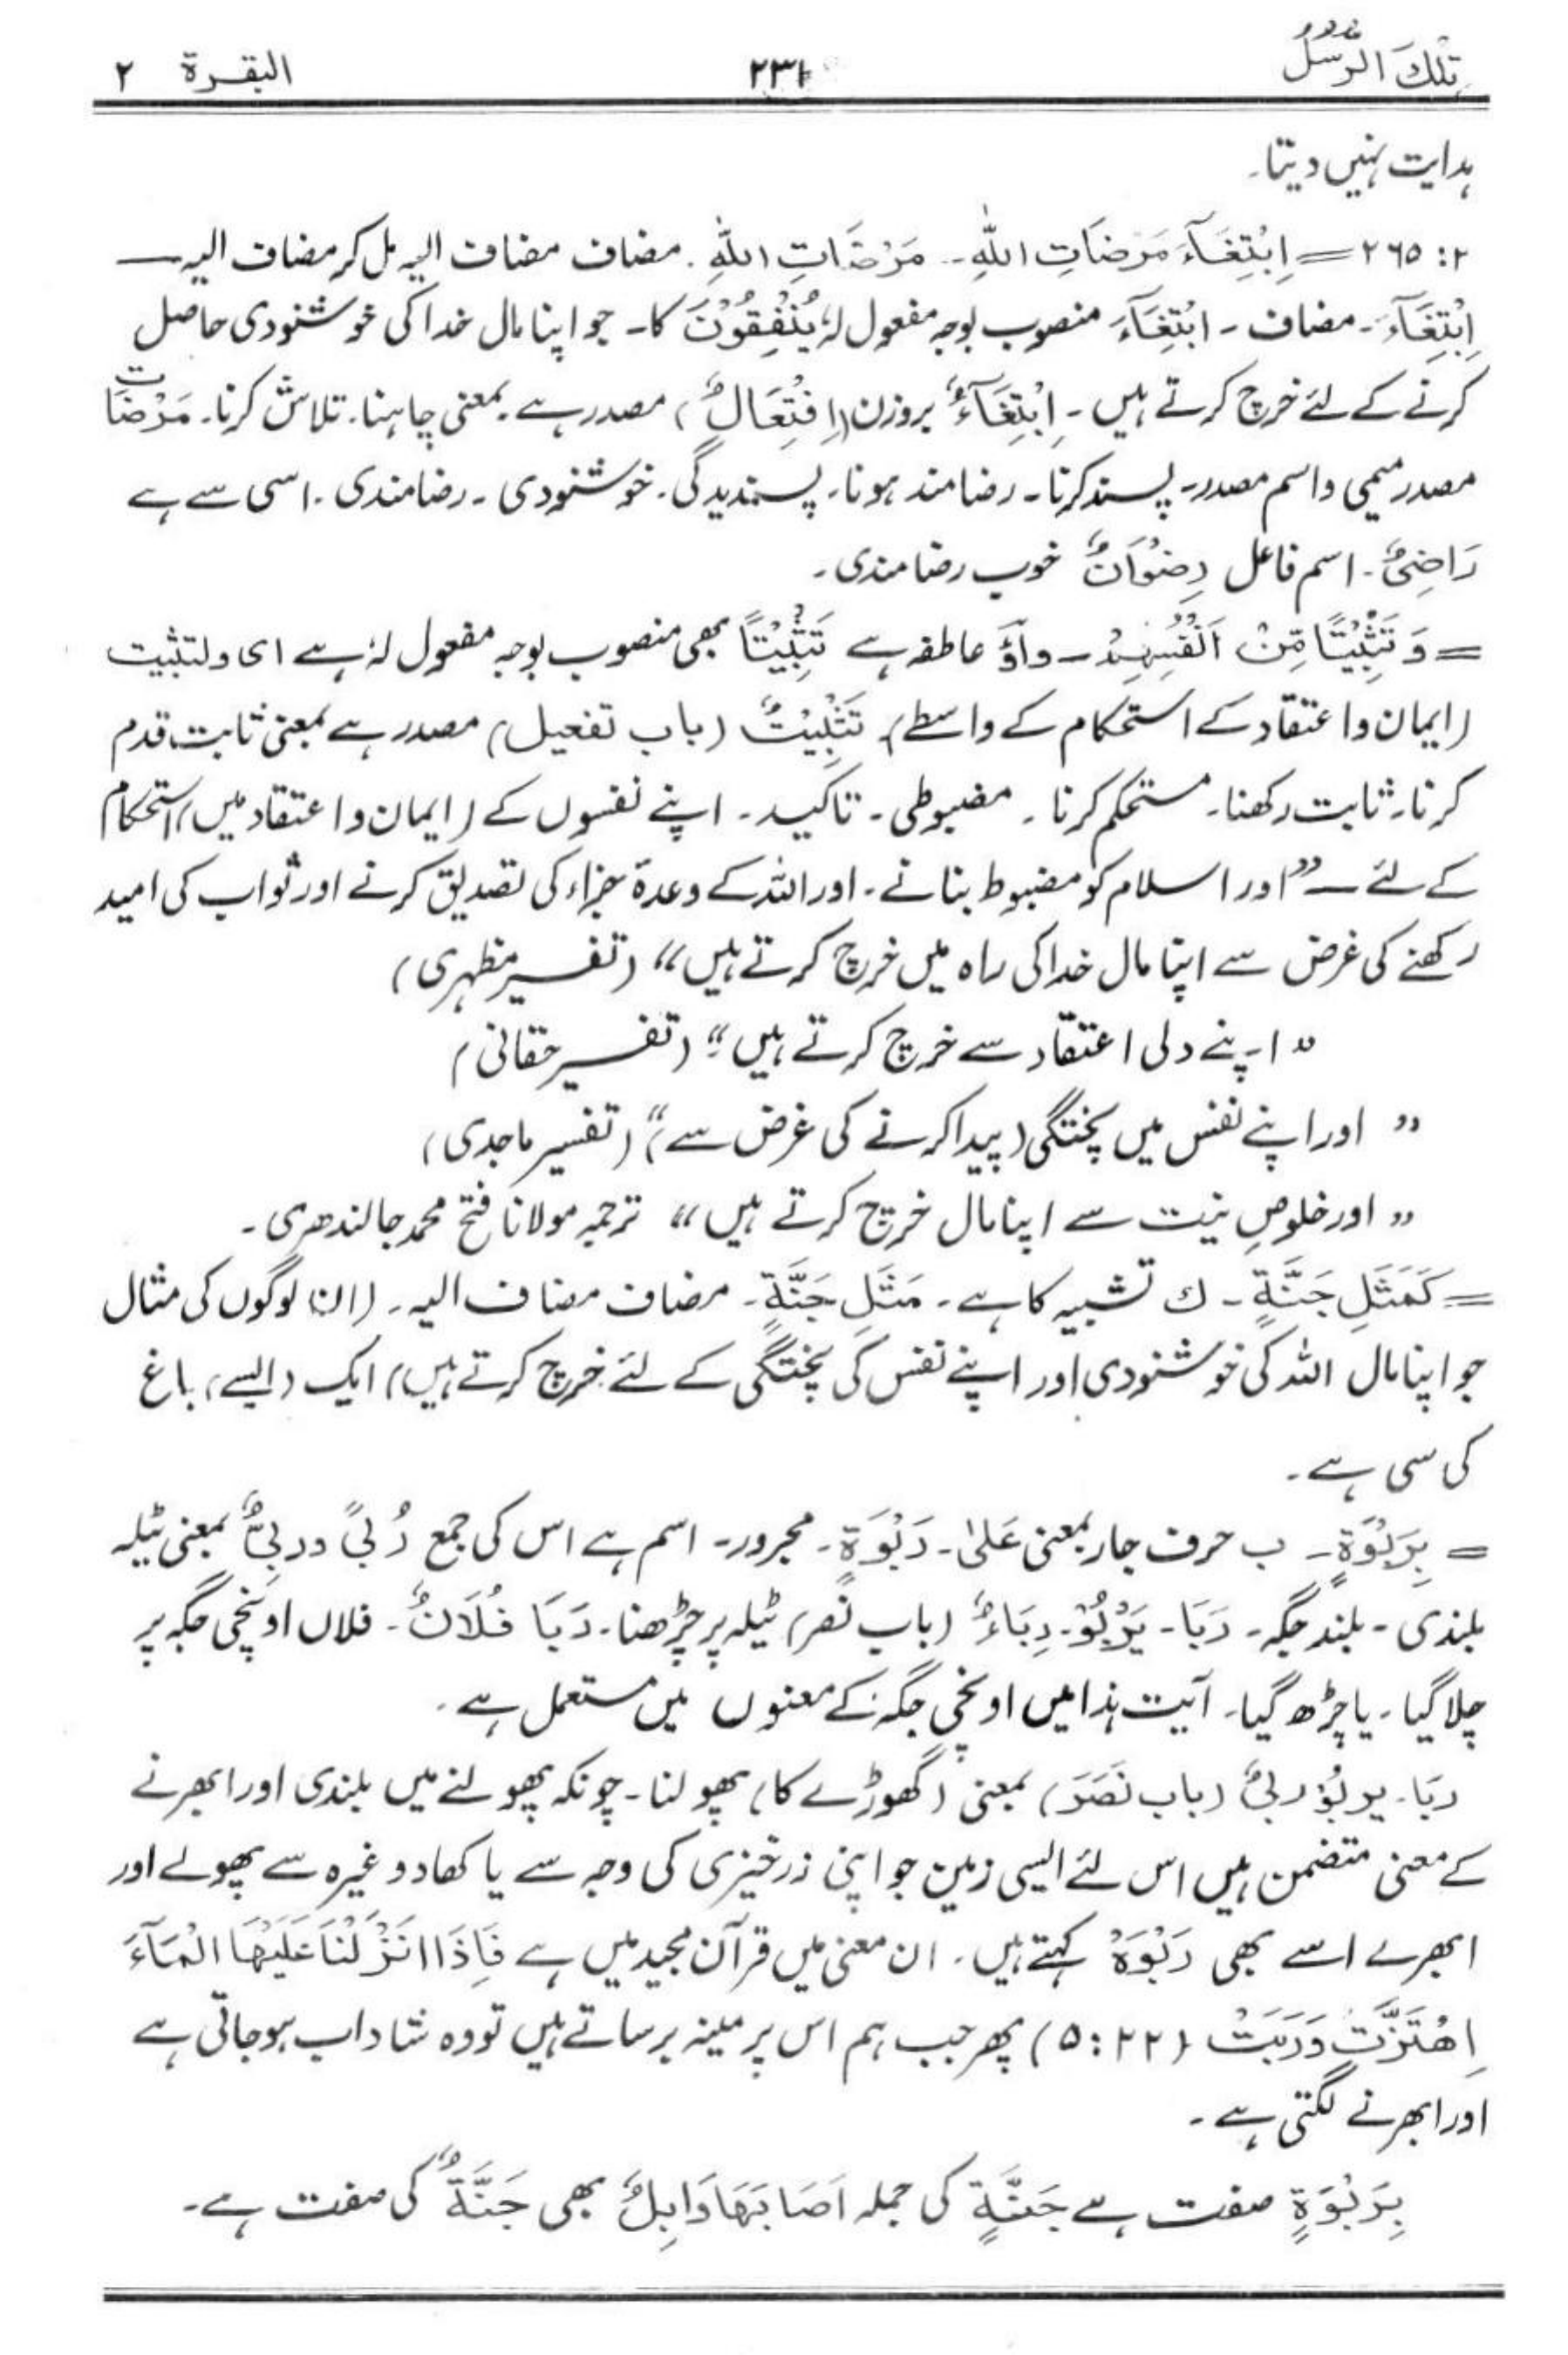 تِلْكَ الرُّسُلُ ۲۳۱ البقرة ۲
ہدایت نہیں دیتا۔
۲: ۲۶۵ = اِبْتِغَآءَ مَرْضَاتِ اللہِ۔ مَرْضَاتِ اللہِ۔ مضاف مضاف الیہ مل کر مضاف الیہ —
اِبْتِغَآءَ۔ مضاف۔ ابْتِغَآءَ منصوب بوجہ مفعول لہٗ یُنْفِقُوْنَ کا۔ جو اپنا مال خدا کی خوشنودی حاصل
کرنے کے لئے خرچ کرتے ہیں۔ اِبْتِغَآءٌ بروزن (اِفْتِعَالٌ) مصدر ہے۔ بمعنی چاہنا۔ تلاش کرنا۔ مَرْضَات
مصدر میمی و اسم مصدر۔ پسند کرنا۔ رضامند ہونا۔ پسندیدگی۔ خوشنودی۔ رضامندی۔ اسی سے ہے
رَاضِیٌ۔ اسم فاعل رِضْوَانٌ خوب رضامندی۔
= وَ تَثْبِیْتًا مِّنْ اَنْفُسِہِمْ۔ واؤ عاطفہ ہے تَثْبِیْتًا بھی منصوب بوجہ مفعول لہٗ ہے ای ولتثبیت
(ایمان و اعتقاد کے استحکام کے واسطے) تَثْبِیْتٌ (باب تفعیل) مصدر ہے بمعنی ثابت قدم
کرنا۔ ثابت رکھنا۔ مستحکم کرنا۔ مضبوطی۔ تاکید۔ اپنے نفسوں کے (ایمان و اعتقاد میں) استحکام
کے لئے — ” اور اسلام کو مضبوط بنانے۔ اور اللہ کے وعدۂ جزاء کی تصدیق کرنے اور ثواب کی امید
رکھنے کی غرض سے اپنا مال خدا کی راہ میں خرچ کرتے ہیں “ (تفسیر مظہری)
” اپنے دلی اعتقاد سے خرچ کرتے ہیں “ (تفسیر حقانی)
” اور اپنے نفس میں پختگی (پیدا کرنے کی غرض سے) “ (تفسیر ماجدی)
” اور خلوصِ نیت سے اپنا مال خرچ کرتے ہیں “ ترجمہ مولانا فتح محمد جالندھری۔
= کَمَثَلِ جَنَّةٍ۔ ك تشبیہ کا ہے۔ مَثَلِ جَنَّةٍ۔ مضاف مضاف الیہ۔ (ان لوگوں کی مثال
جو اپنا مال اللہ کی خوشنودی اور اپنے نفس کی پختگی کے لئے خرچ کرتے ہیں) ایک (ایسے) باغ
کی سی ہے۔
= بِرَبْوَةٍ۔ ب حرف جار بمعنی عَلیٰ۔ رَبْوَةٍ۔ مجرور۔ اسم ہے اس کی جمع رُبیً و ربیٌّ بمعنی ٹیلہ
بلندی۔ بلند جگہ۔ رَبَا۔ یَرْبُوْ۔ رِبَاءٌ (باب نصر) ٹیلہ پر چڑھنا۔ رَبَا فُلَانٌ۔ فلاں اونچی جگہ پر
چلا گیا۔ یا چڑھ گیا۔ آیت ہذا میں اونچی جگہ کے معنوں میں مستعمل ہے۔
ربَا۔ یربُوْ ربیٌ (باب نَصَرَ) بمعنی (گھوڑے کا) پھولنا۔ چونکہ پھولنے میں بلندی اور ابھرنے
کے معنی متضمن ہیں اس لئے ایسی زمین جو اپنی زرخیزی کی وجہ سے یا کھاد وغیرہ سے پھولے اور
ابھرے اسے بھی رَبْوَةٌ کہتے ہیں۔ ان معنی میں قرآن مجید میں ہے فَاِذَا انْزَلْنَا عَلَیْھَا الْمَآءَ
اِھْتَزَّتْ وَرَبَتْ (۲۲: ۵) پھر جب ہم اس پر مینہ برساتے ہیں تو وہ شاداب ہوجاتی ہے
اور ابھرنے لگتی ہے۔
بِرَبْوَةٍ صفت ہے جَنَّةٍ کی جملہ اَصَابَهَا وَابِلٌ بھی جَنَّةٌ کی صفت ہے۔